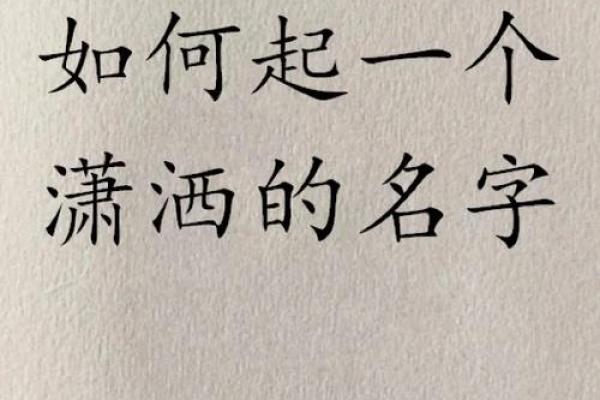 如何起一个
潇洒的名字